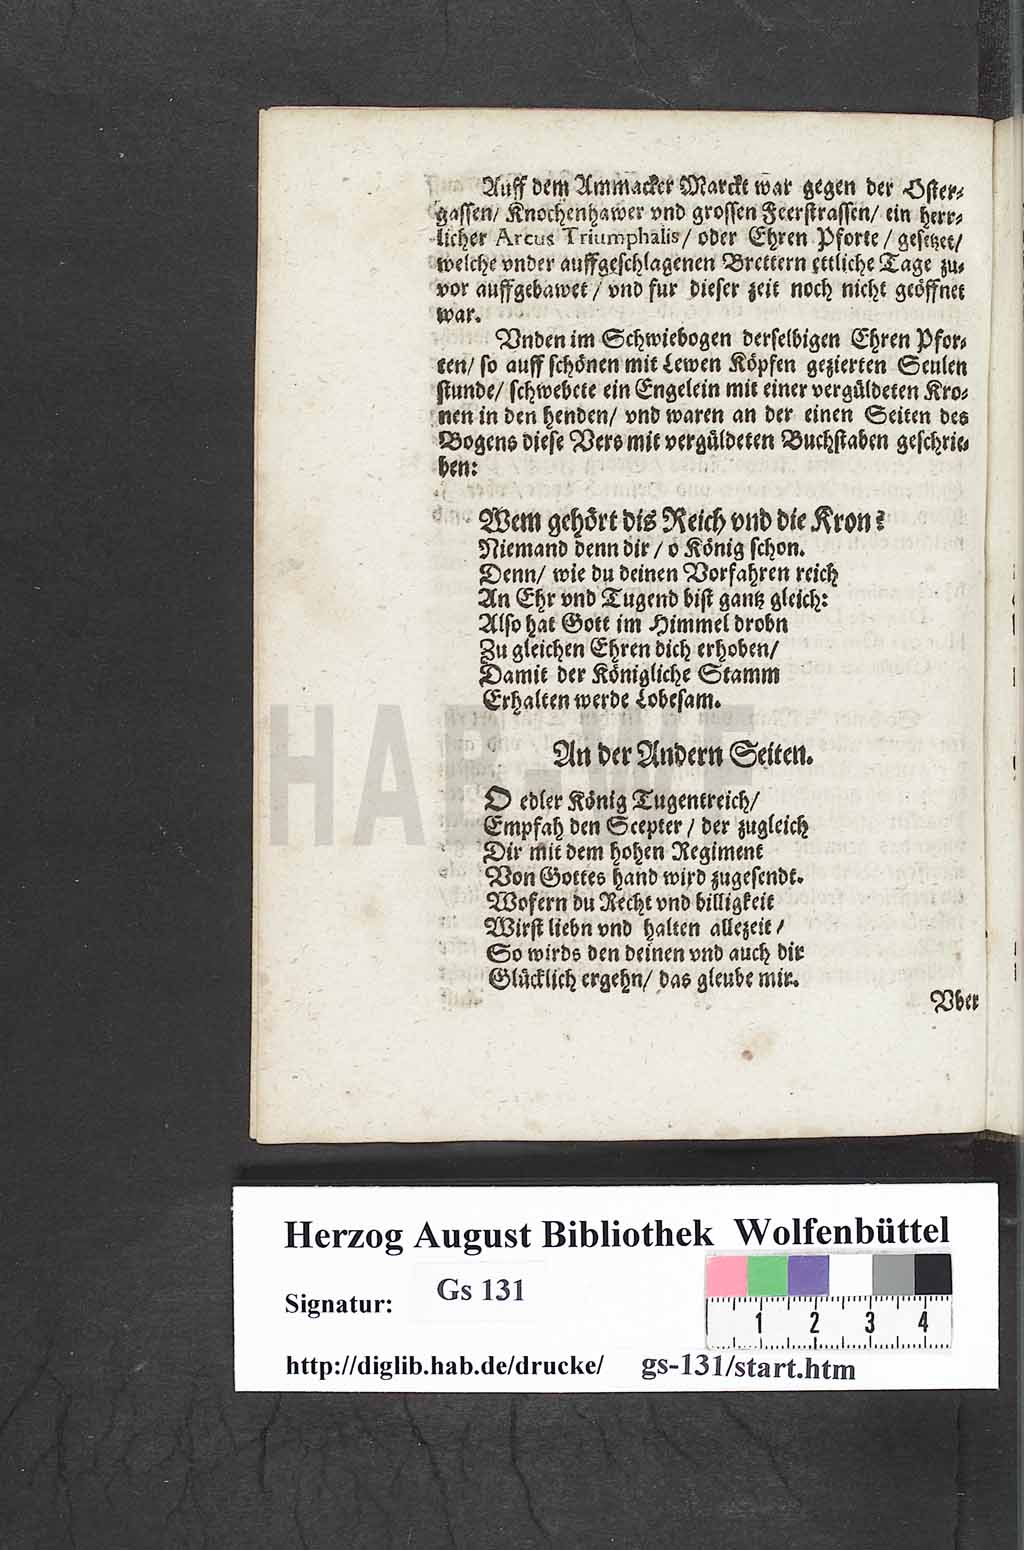 Auff dem Ammacker Marckt war gegen der Oster-
gassen/ Knochenhawer vnd grossen Feerstrassen/ ein herr-
licher Arcus Triumphalis/ oder Ehren Pforte / gesetzet/
welche vnder auffgeschlagenen Brettern ettliche Tage zu-
vor auffgebawet / vnd fur dieser zeit noch nicht geöffnet
war.
Vnden im Schwiebogen derselbigen Ehren Pfor-
ten/ so auff schönen mit Lewen Köpfen gezierten Seulen
stunde/ schwebete ein Engelein mit einer vergüldeten Kro-
nen in den henden/ vnd waren an der einen Seiten des
Bogens diese Vers mit vergüldeten Buchstaben geschrie-
ben:
Wem gehört dis Reich vnd die Kron?
Niemand denn dir / o König schon.
Denn/ wie du deinen Vorfahren reich
An Ehr vnd Tugend bist gantz gleich:
Also hat Gott im Himmel drobn
Zu gleichen Ehren dich erhoben/
Damit der Königliche Stamm
Erhalten werde Lobesam.
An der Andern Seiten.
O edler König Tugentreich/
Empfah den Scepter / der zugleich
Dir mit dem hohen Regiment
Von Gottes hand wird zugesendt.
Wofern du Recht vnd billigkeit
Wirst liebn vnd halten allezeit /
So wirds den deinen vnd auch dir
Glücklich ergehn/ das gleube mir.
Vber
Herzog August Bibliothek Wolfenbüttel
Signatur: Gs 131
1 2 3 4
http://diglib.hab.de/drucke/ gs-131/start.htm